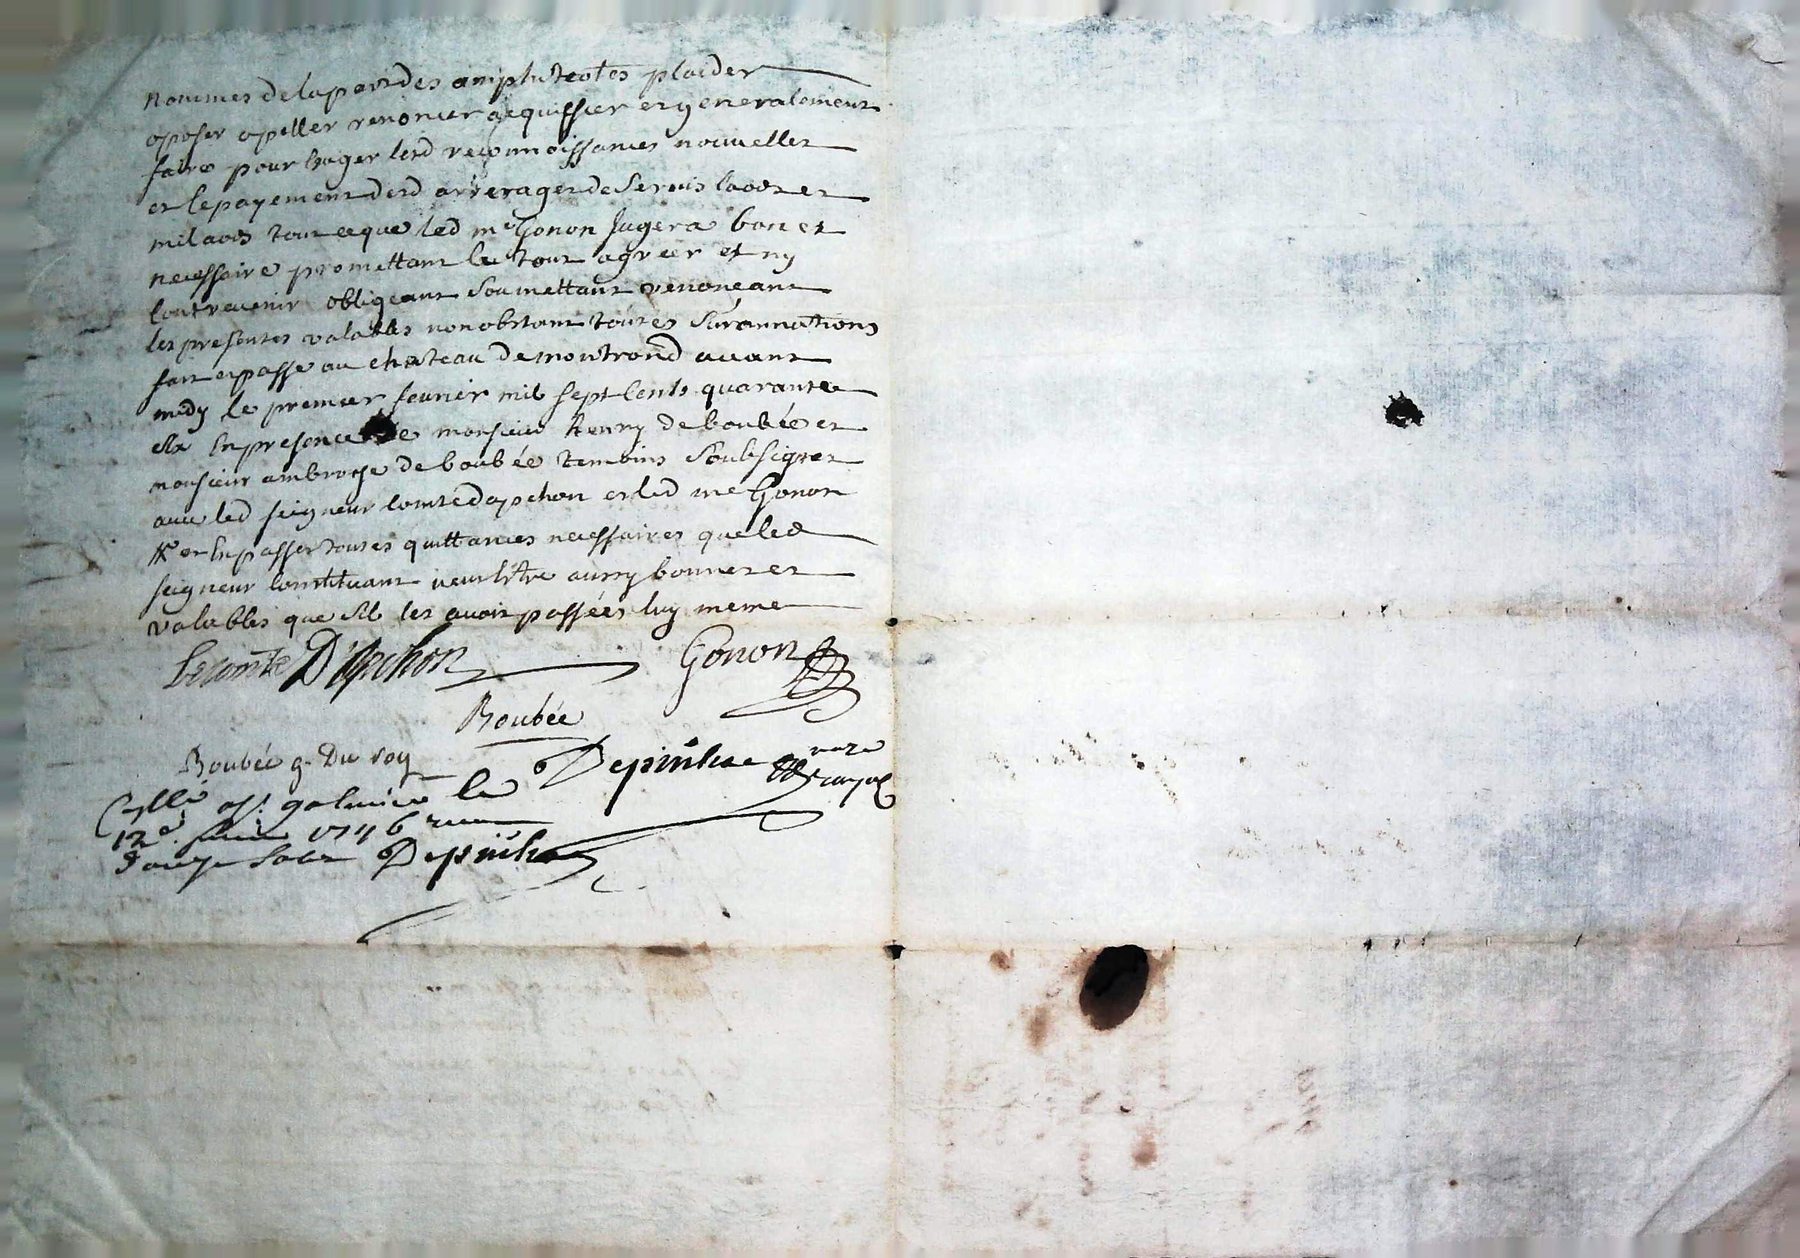 nommes de la part des amphiteotes plaider
oposer apeller renoncer acquissier et generalement
faire pour Exiger lesd reconnoissances nouvelles
et le payement desd arrerages de servis laods et
milaods tout ce que led me Gonon Jugera bon et
necessaire promettant le tout agreer et ny
Contrevenir obligeant soumettant renonceant
les presentes valables nonobstant toutes surannations
fait et passé au chateau de montrond avant
midy le premier fevrier mil sept Cents quarante
six En presence de monsieur henry de boubée et
monsieur ambroise de boubée temoins soubsignes
avec led seigneur Comte dapchon et led me Gonon
et En passer toutes quittances necessaires que led
seigneur Constituant veut Etre aussy bonnes et
valables que sil les avoit passées luy meme
Le comte D'Apchon Gonon
Boubée
Boubée g. Du roy
Depiulha nore royal
Contllé a st galmier le
12e fevrier 1746 reçu
douze sols Depiulha